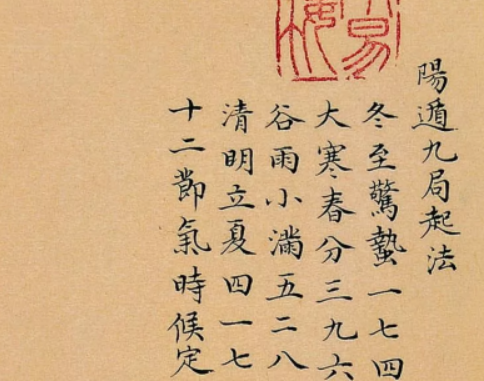 陽遁九局起法
冬至驚蟄一七四
大寒春分三九六
谷雨小滿五二八
清明立夏四一七
十二節氣時候定